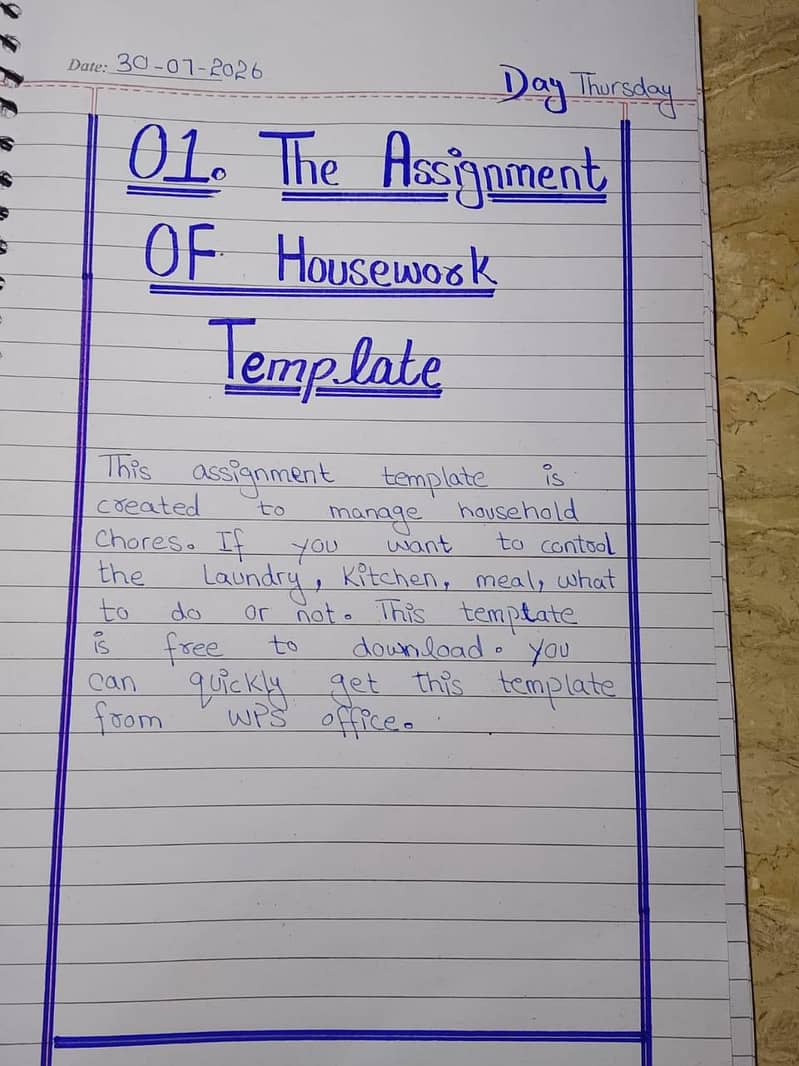 Date: 30-07-2026
Day Thursday
01. The Assignment
OF Housework
Template
This assignment template is
created to manage household
Chores. If you want to contool
the Laundry, Kitchen, meal, what
to do or not. This template
is free to download. you
can quickly get this template
from WPS office.